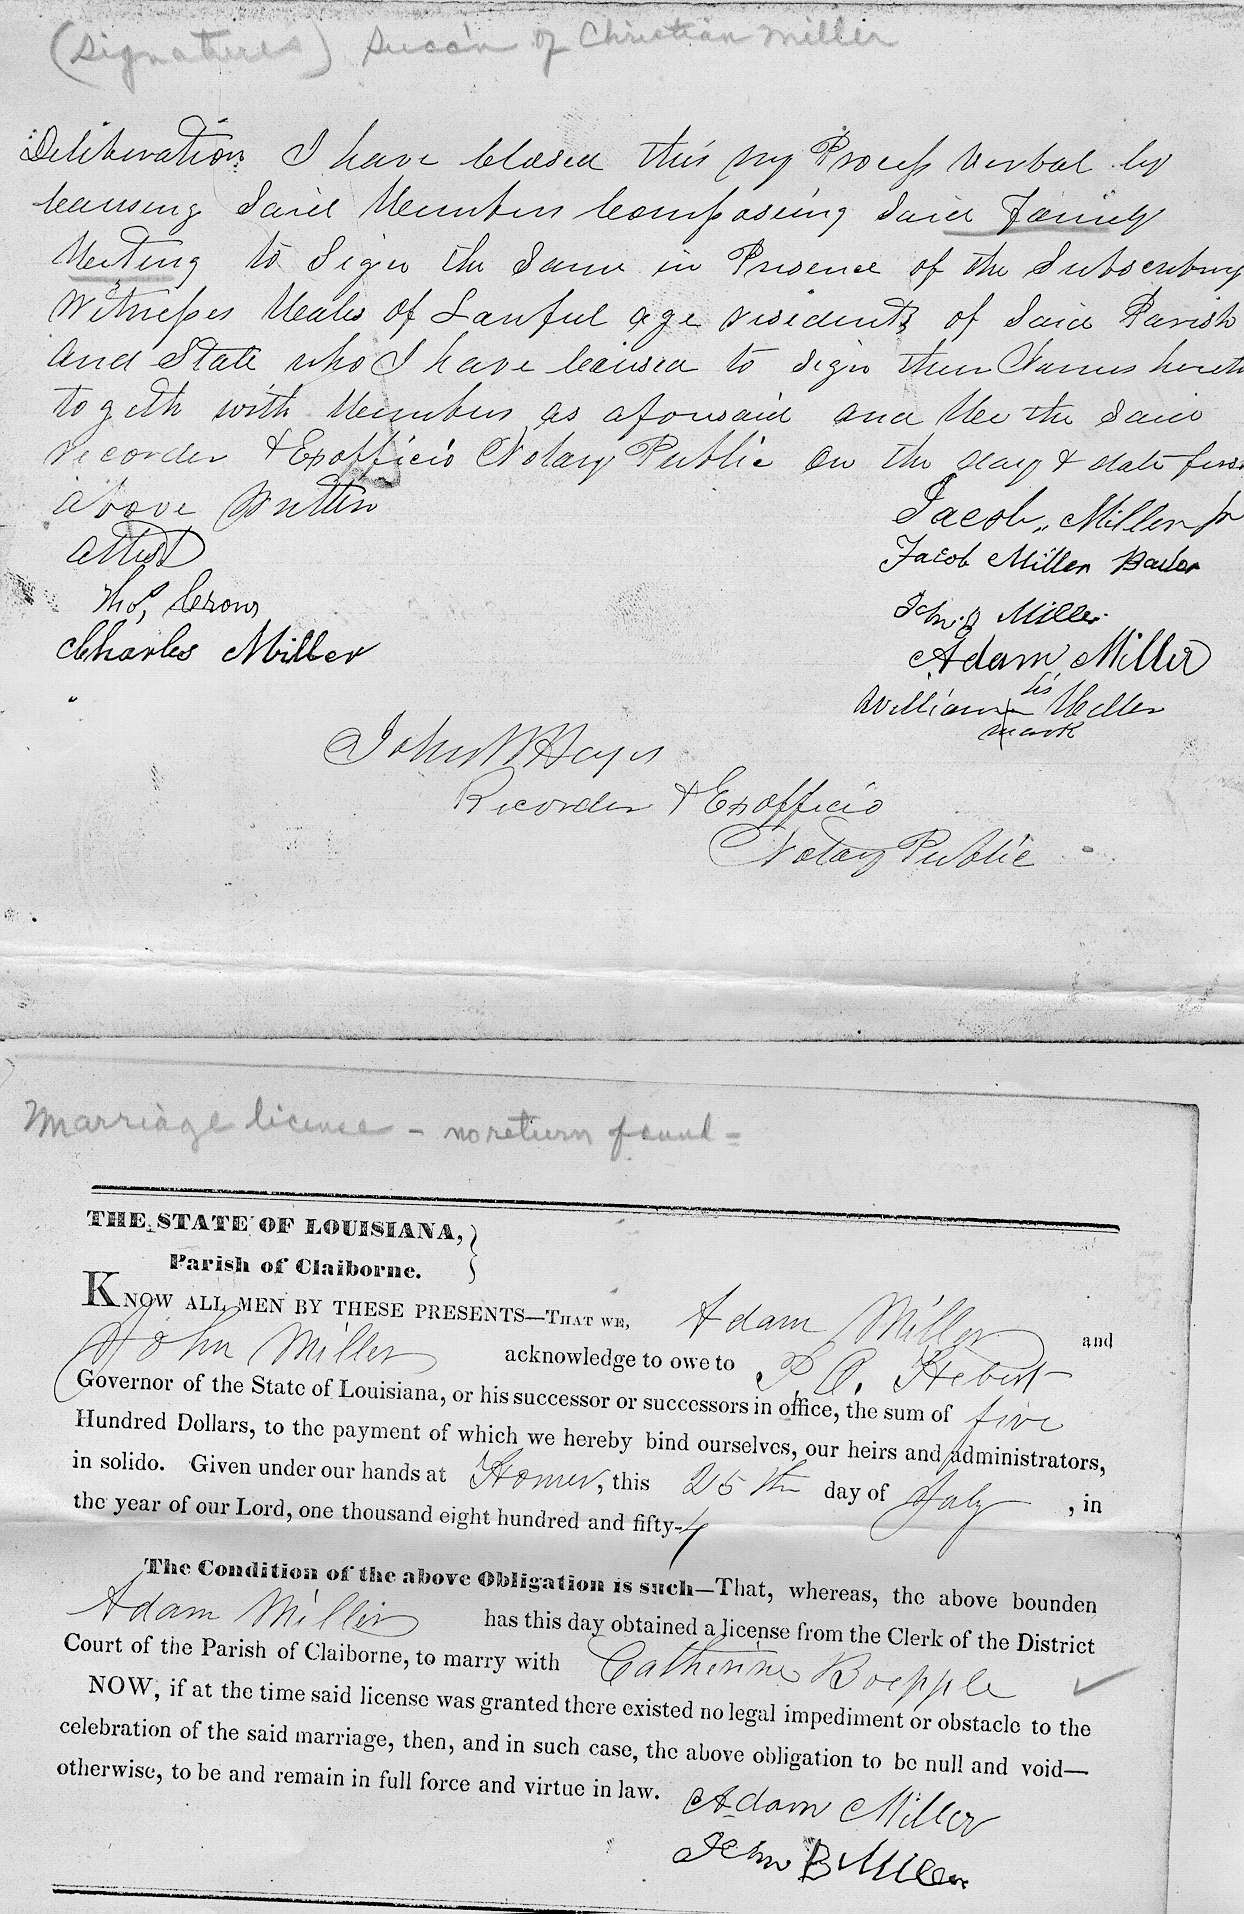 (Signatures) Succn of Christian Miller
Deliberation I have Closed this my Process Verbal by
Causing Said Members Composing Said Family
Meeting to Sign the Same in Presence of the Subscribing
Witnesses Males of Lawful age residents of Said Parish
And State who I have Caused to Sign their Names hereto
togeth with Members as aforesaid and Me the Said
Recorder & Exofficio Notary Public on the day & date first
above Written
Attest
Thos, Crow
Charles Miller
Jacob Miller Jr
Jacob Miller
John B Miller
Adam Miller
his
William Miller
mark
John W Hays
Recorder & Exofficio
Notary Public
Marriage licence - no return found =
THE STATE OF LOUISIANA,
Parish of Claiborne.
KNOW ALL MEN BY THESE PRESENTS—THAT WE, Adam Miller and
John Miller acknowledge to owe to P. O. Hebert
Governor of the State of Louisiana, or his successor or successors in office, the sum of five
Hundred Dollars, to the payment of which we hereby bind ourselves, our heirs and administrators,
in solido. Given under our hands at Homer, this 25th day of July , in
the year of our Lord, one thousand eight hundred and fifty-4
The Condition of the above Obligation is such—That, whereas, the above bounden
Adam Miller has this day obtained a license from the Clerk of the District
Court of the Parish of Claiborne, to marry with Catherine Boepple
NOW, if at the time said license was granted there existed no legal impediment or obstacle to the
celebration of the said marriage, then, and in such case, the above obligation to be null and void—
otherwise, to be and remain in full force and virtue in law.
Adam Miller
John B Miller